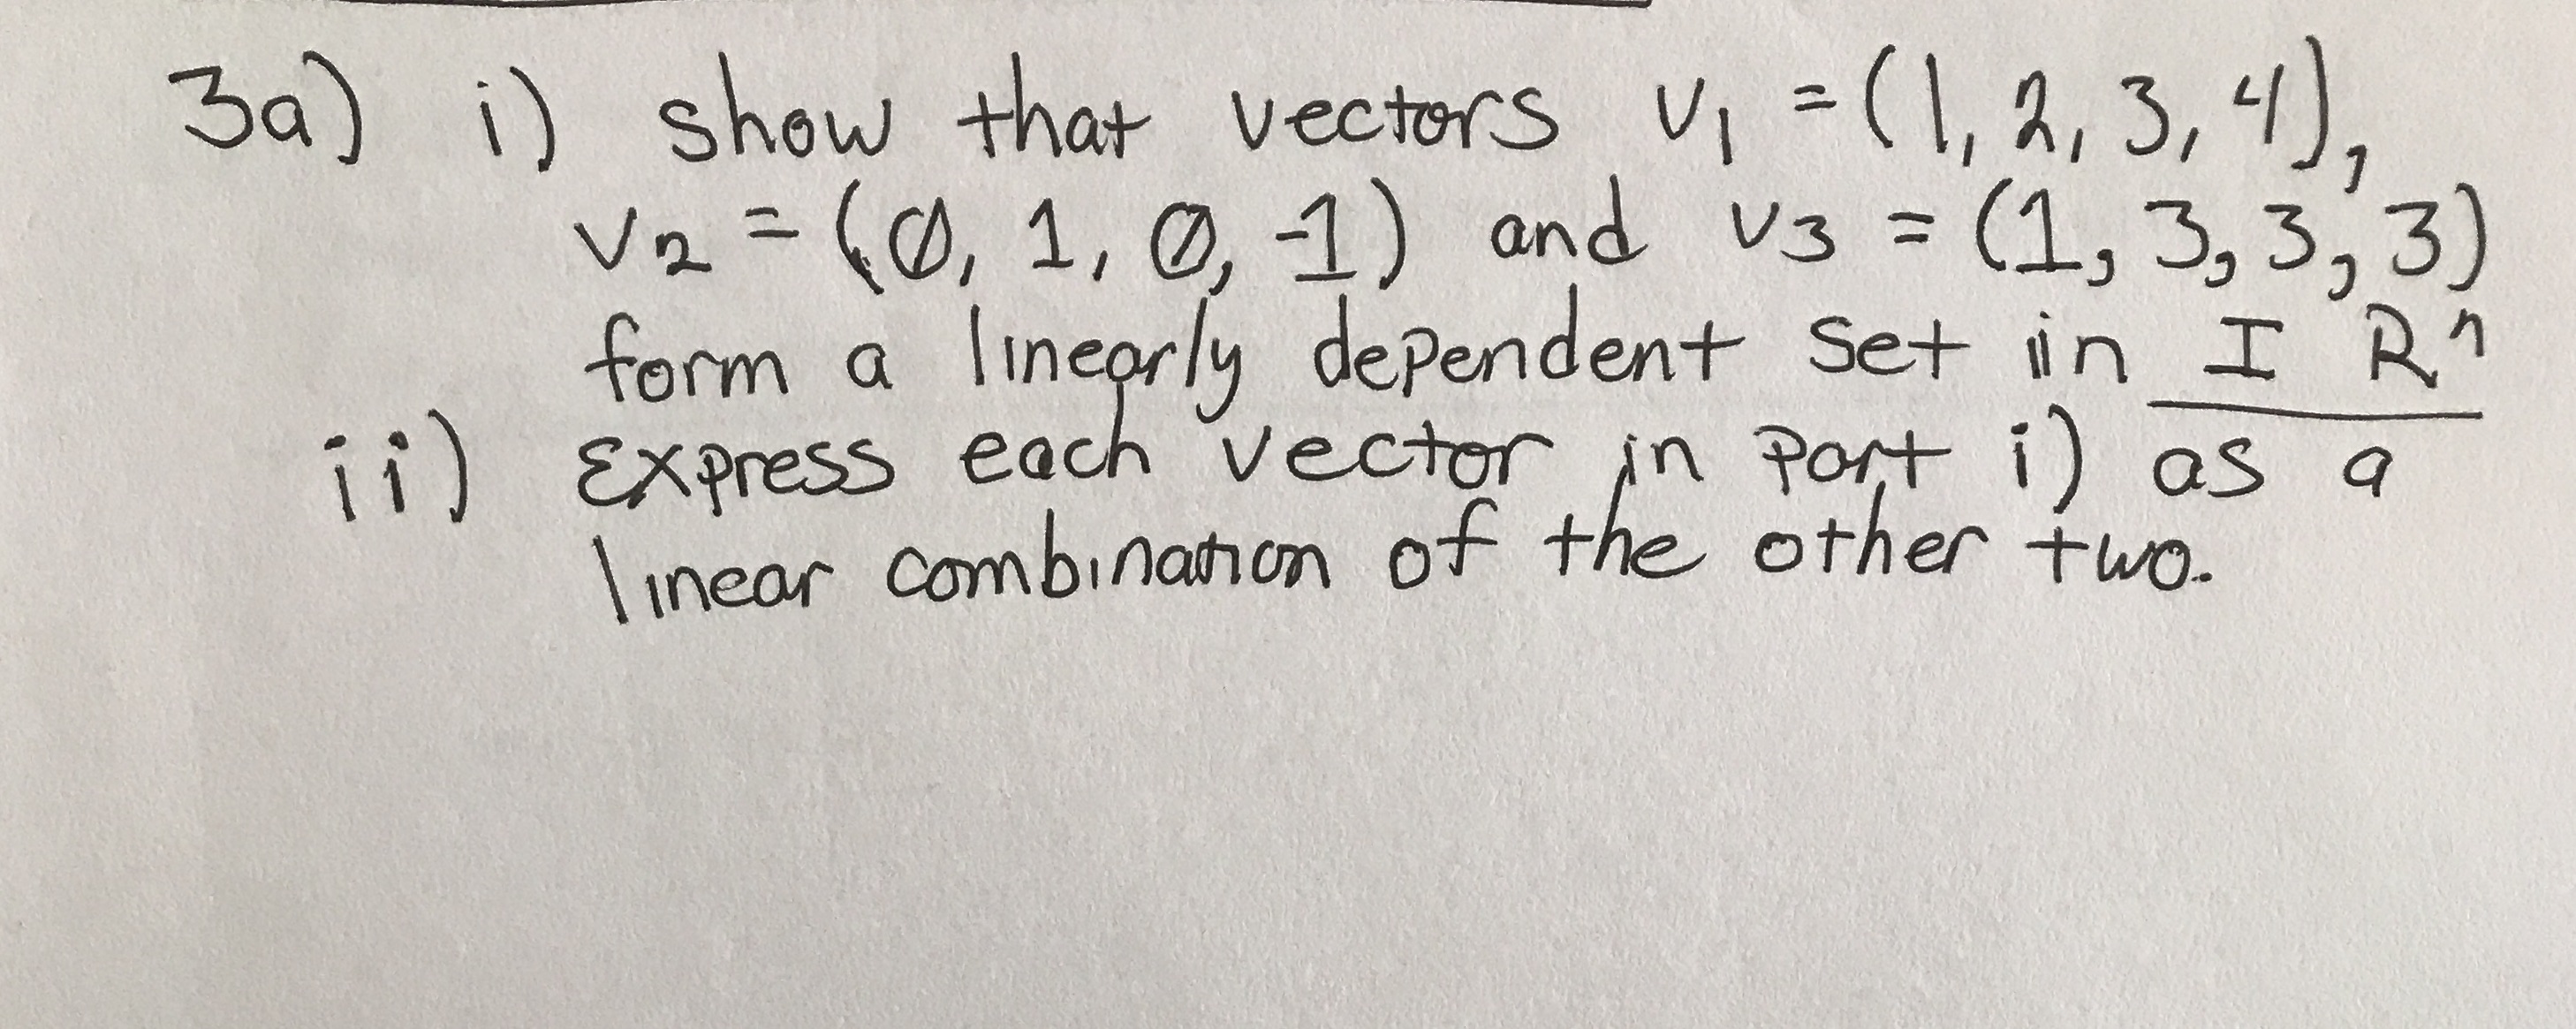 3a) i) show that vectors v1 = (1, 2, 3, 4),
v2 = (0, 1, 0, -1) and v3 = (1, 3, 3, 3)
form a linearly dependent set in I R^n
ii) Express each vector in part i) as a
linear combination of the other two.